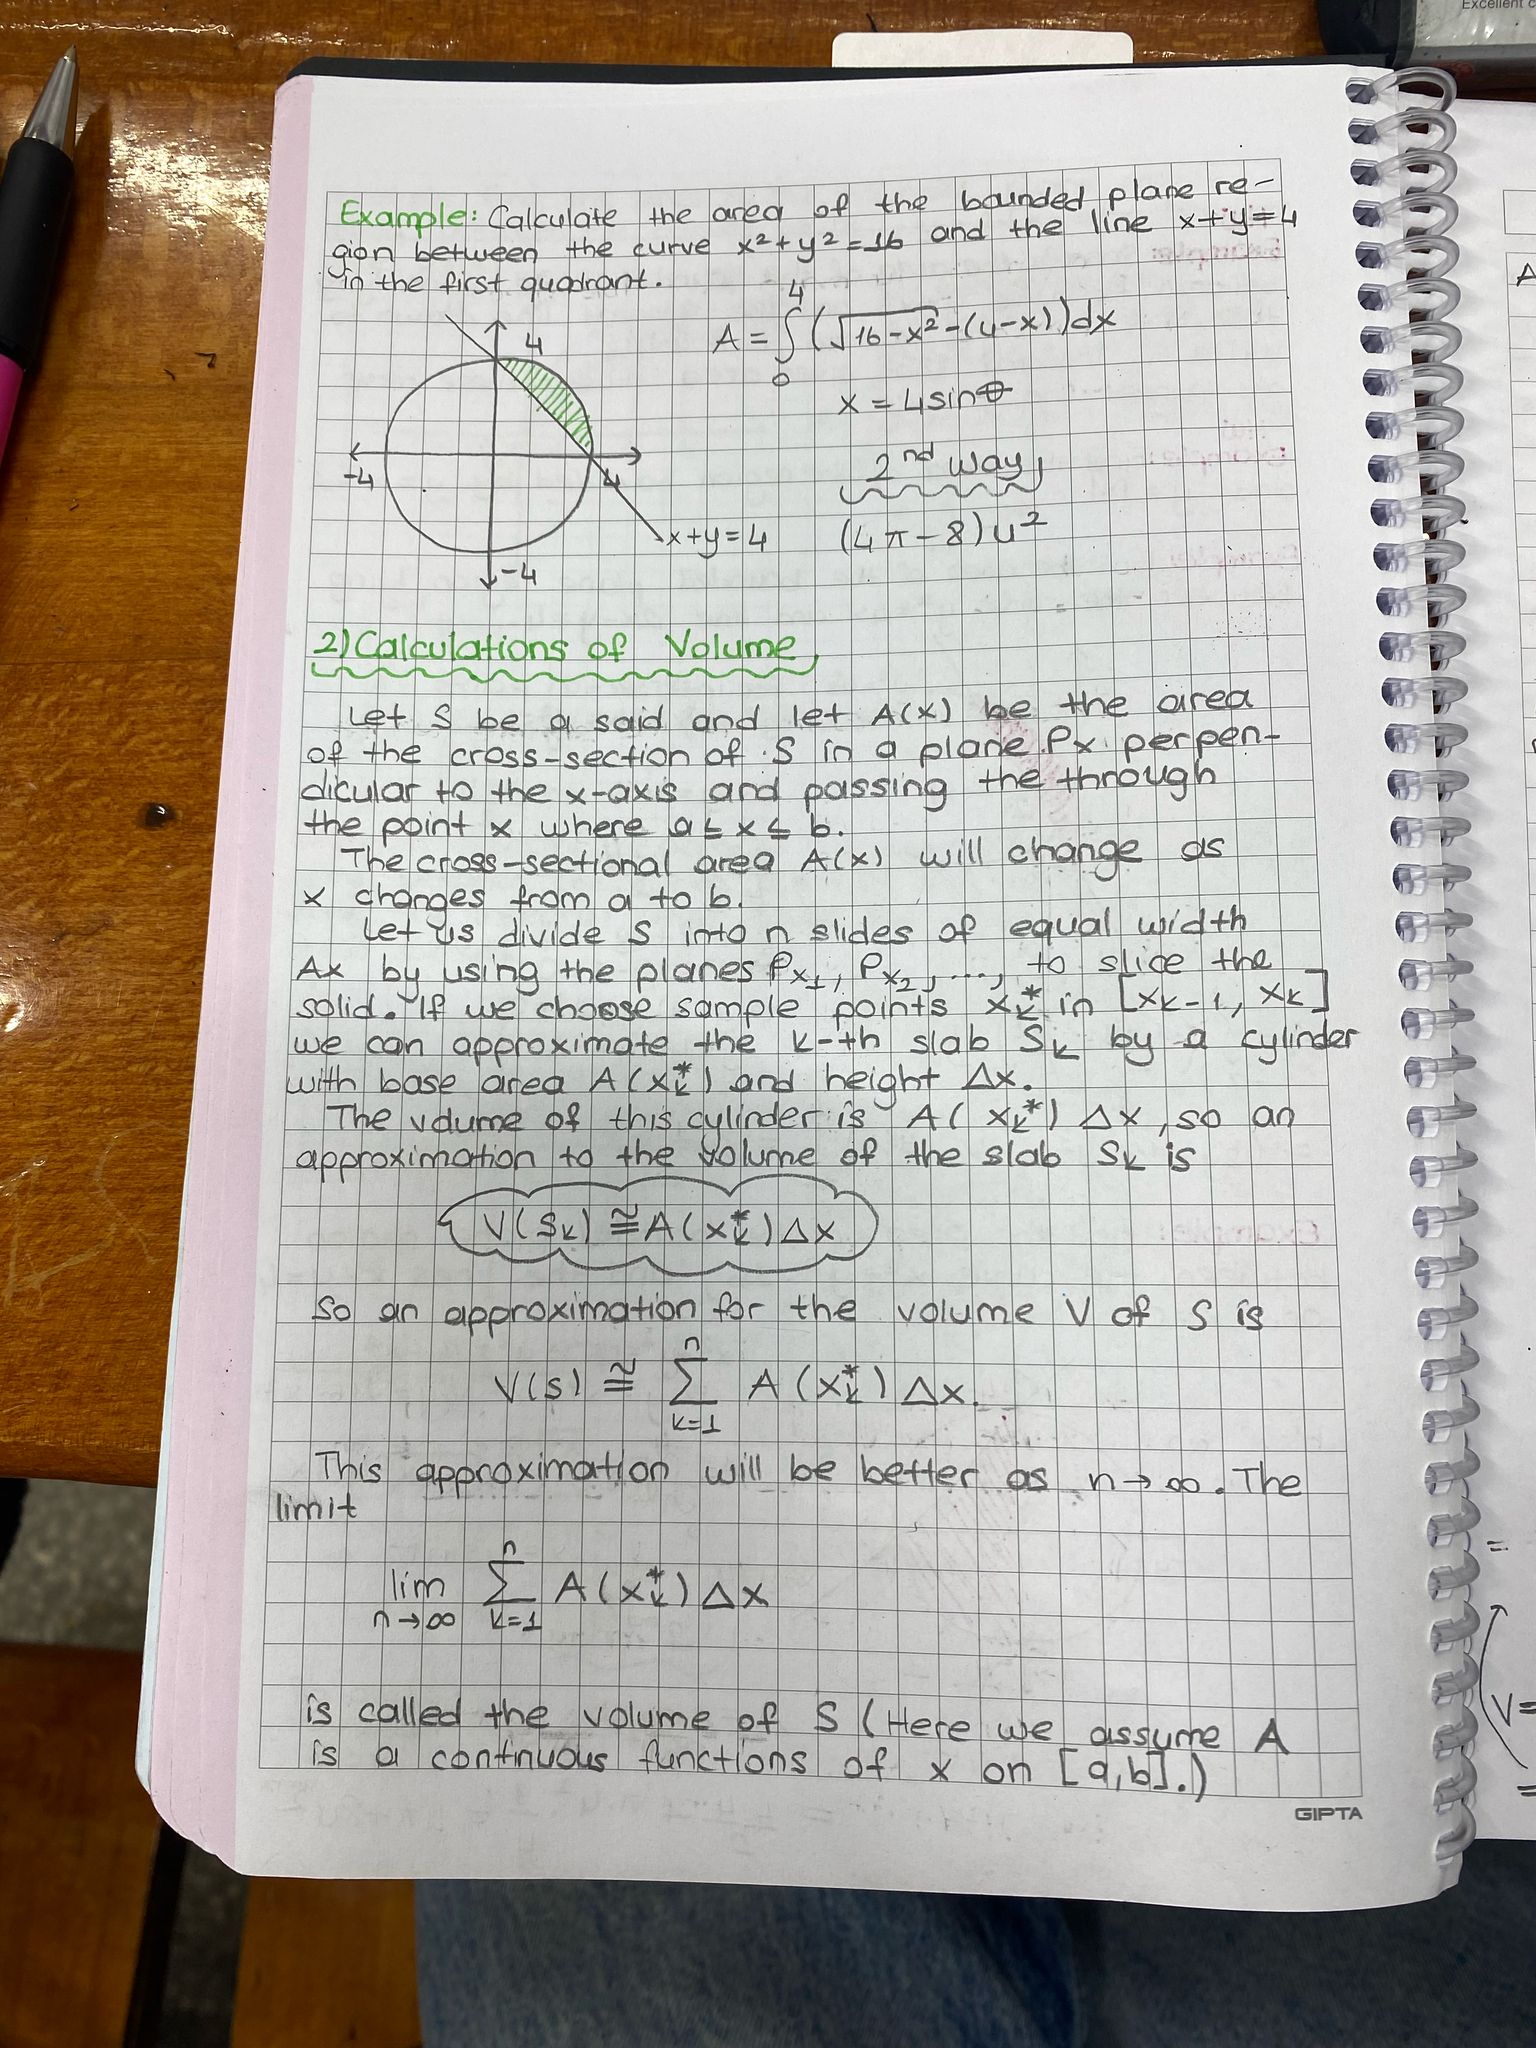 Excellent
Example: Calculate the area of the bounded plane re-
gion between the curve x²+y²=16 and the line x+y=4
in the first quadrant.
A = ∫₀⁴ (√16-x² -(4-x))dx
x = 4sinθ
2nd way
(4π-8)u²
4
-4
4
x+y=4
-4
2) Calculations of Volume
Let S be a said and let A(x) be the area
of the cross-section of S in a plane Px perpen-
dicular to the x-axis and passing the through
the point x where a≤x≤b.
The cross-sectional area A(x) will change as
x changes from a to b.
Let us divide S into n slides of equal width
Δx by using the planes Px₁, Px₂, ..., to slice the
solid. If we choose sample points xₖ* in [xₖ₋₁, xₖ]
we can approximate the k-th slab Sₖ by a cylinder
with base area A(xₖ*) and height Δx.
The volume of this cylinder is A(xₖ*) Δx, so an
approximation to the volume of the slab Sₖ is
V(Sₖ) ≅ A(xₖ*)Δx
So an approximation for the volume V of S is
V(S) ≅ ∑ₖ₌₁ⁿ A(xₖ*) Δx.
This approximation will be better as n→∞. The
limit
lim n→∞ ∑ₖ₌₁ⁿ A(xₖ*) Δx
is called the volume of S (Here we assume A
is a continuous functions of x on [a,b].)
GIPTA
A
=
V=
=